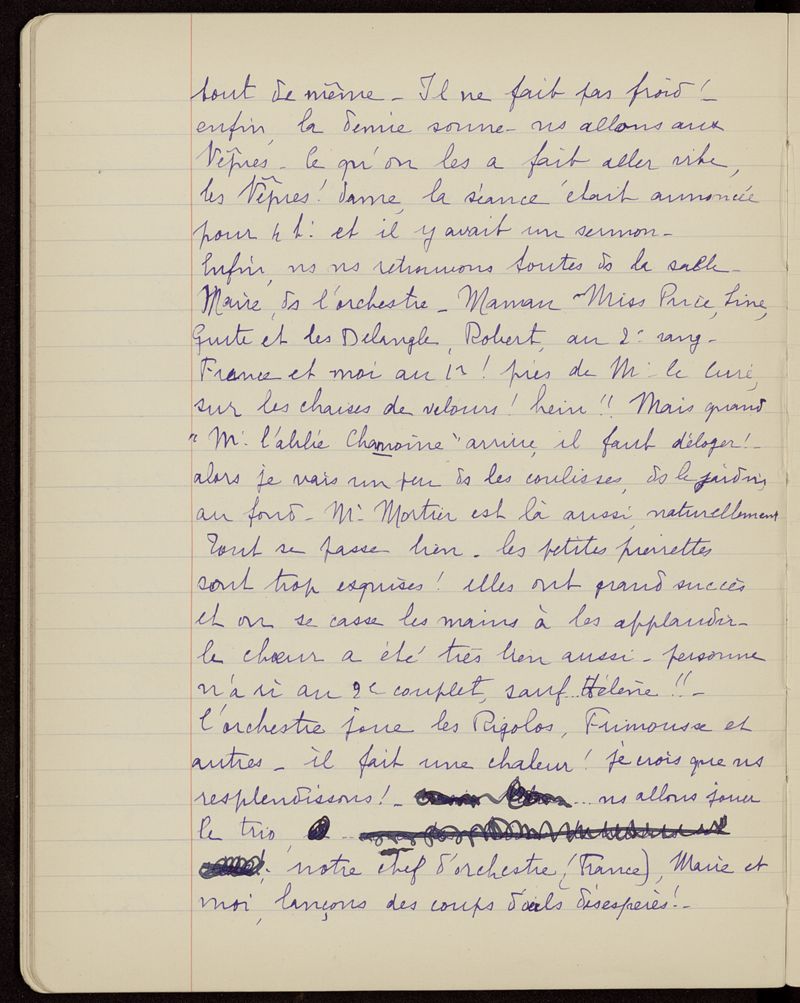 tout de même - Il ne fait pas froid ! -
enfin, la demie sonne - ns allons aux
Vêpres - Ce qu'on les a fait aller vite,
les Vêpres ! dame, la séance était annoncée
pour 4 h : et il y avait un sermon -
Enfin, ns ns retrouvons toutes ds la salle -
Marie, ds l'orchestre - Maman - Miss Price, Line,
Guite et les Delangle, Robert, au 2e rang -
France et moi au 1r ! près de Mr le Curé,
sur les chaises de velours ! hein !! Mais quand
"Mr l'abbé Chanoine" arrive, il faut déloger ! -
alors je vais un peu ds les coulisses, ds le jardin,
au fond - Mr Mortier est là aussi, naturellement
Tout se passe bien - les petites pierrettes
sont trop exquises ! elles ont grand succès
et on se casse les mains à les applaudir -
le chœur a été très bien aussi - personne
n'a ri au 2e couplet, sauf... Hélène !! -
l'orchestre joue les Rigolos, Frimousse et
autres - il fait une chaleur ! je crois que ns
resplendissons ! - ... ns allons jouer
le trio,
notre chef d'orchestre (France), Marie et
moi, lançons des coups d'œils désespérés ! -